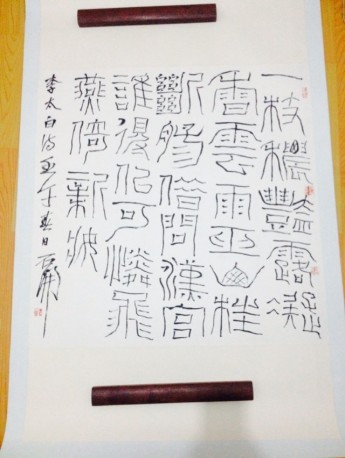 一枝穠豔露凝
香雲雨巫山枉
斷腸借問漢宮
誰得似可憐飛
燕倚新妝
李太白詩春日